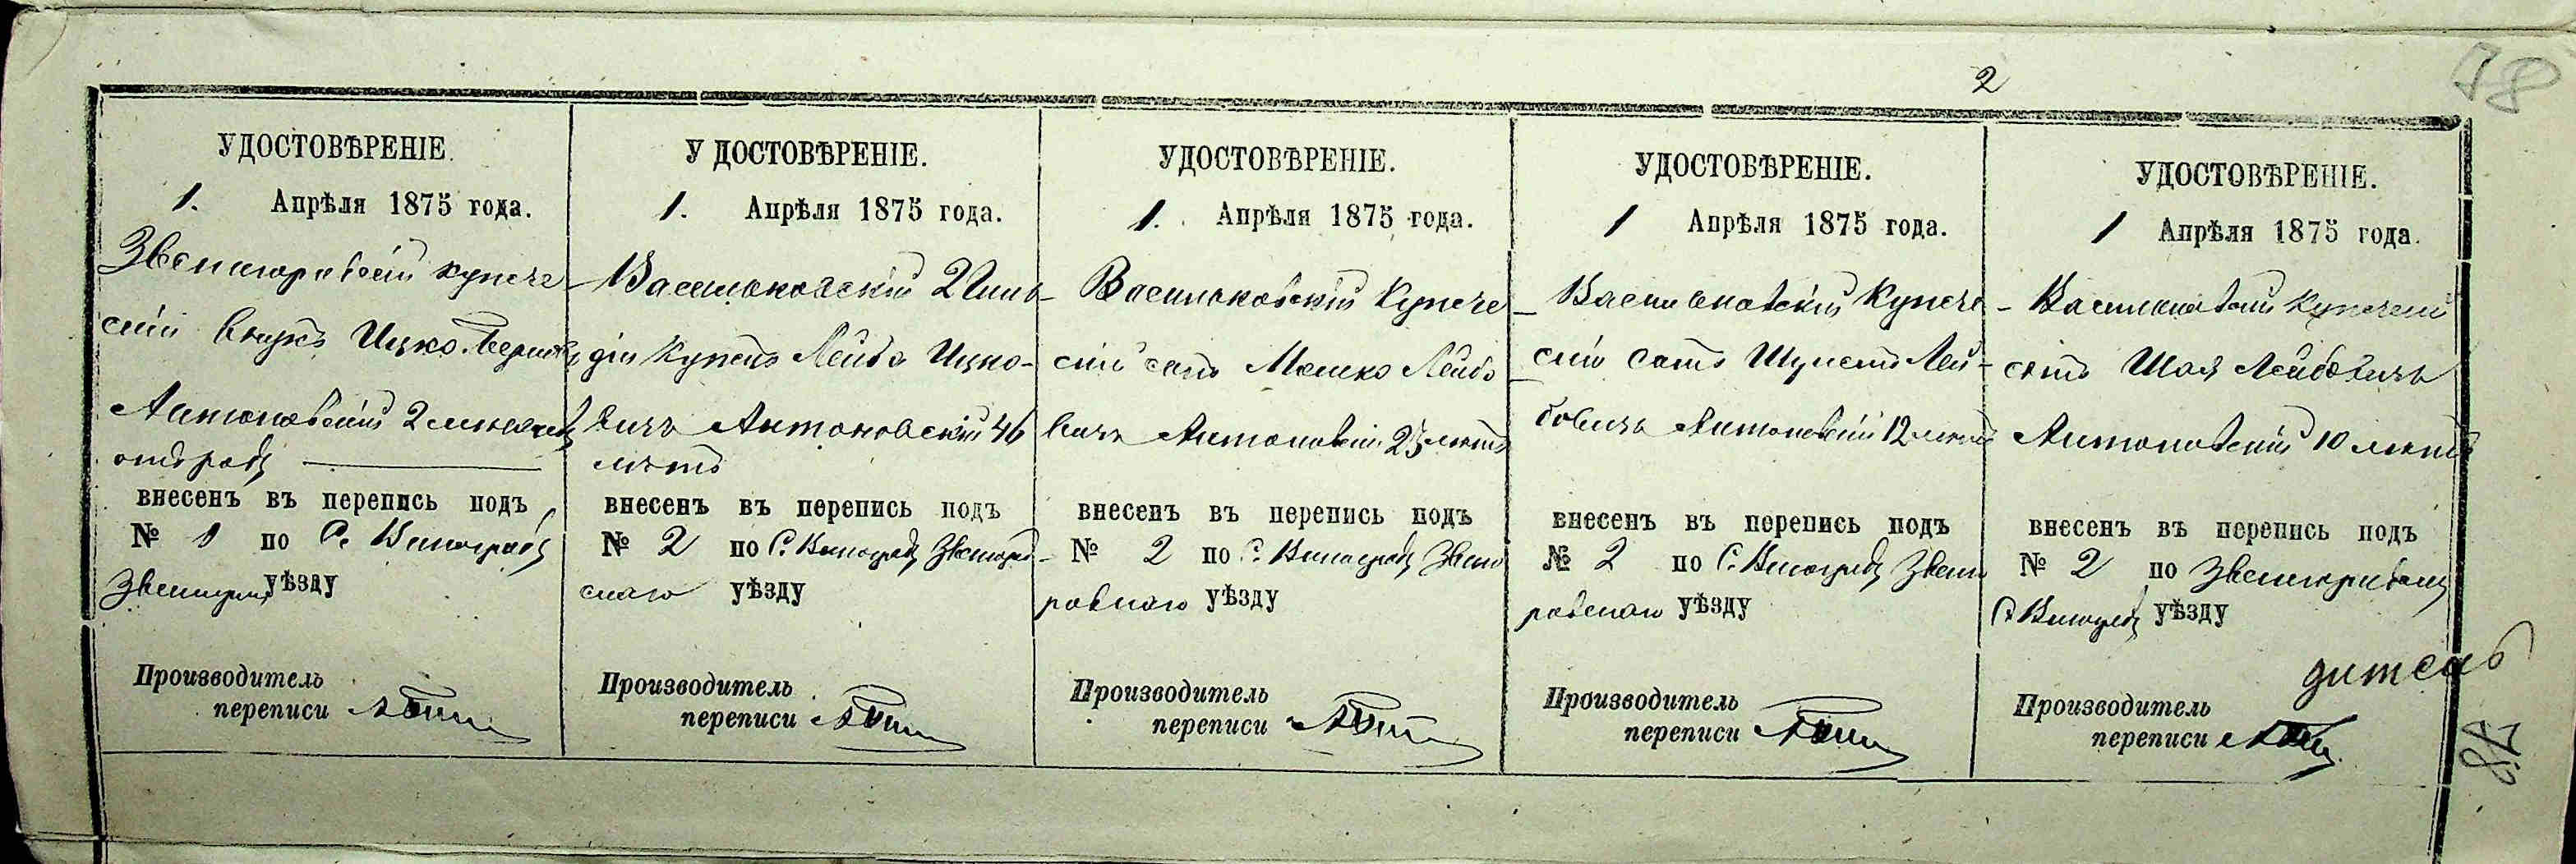 2
78
УДОСТОВѢРЕНІЕ.
1. Апрѣля 1875 года.
Звенигородскій купече
скій внукъ Ицко Берко
Антоновскій 2 мѣсяца
отъ роду
внесенъ въ перепись подъ
№ 1 по С. Виноградъ
Звенигор уѣзду
Производитель
переписи
У ДОСТОВѢРЕНІЕ.
1. Апрѣля 1875 года.
Васильковскій 2 Гиль
діи купецъ Лейба Ицко-
вичъ Антоновскій 46
лѣтъ
внесенъ въ перепись подъ
№ 2 по С. Виноградъ Звениго
скаго уѣзду
Производитель
переписи
УДОСТОВѢРЕНІЕ.
1. Апрѣля 1875 года.
Васильковскій Купече
скій сынъ Мошко Лейбо
вичъ Антоновскій 25 лѣтъ
внесенъ въ перепись подъ
№ 2 по С. Виноградъ Звениго
родскаго уѣзду
Производитель
переписи
УДОСТОВѢРЕНІЕ.
1 Апрѣля 1875 года.
Васильковскій Купече
скій сынъ Лей-
бовичъ Антоновскій 12 лѣтъ
внесенъ въ перепись подъ
№ 2 по С. Виноградъ Звениго
родскаго уѣзду
Производитель
переписи
УДОСТОВѢРЕНІЕ.
1 Апрѣля 1875 года.
Васильковскій Купеческій
сынъ Шая Лейбовичъ
Антоновскій 10 лѣтъ
внесенъ въ перепись подъ
№ 2 по Звенигородскому
С. Виноградъ уѣзду
дитель
Производитель
переписи
78